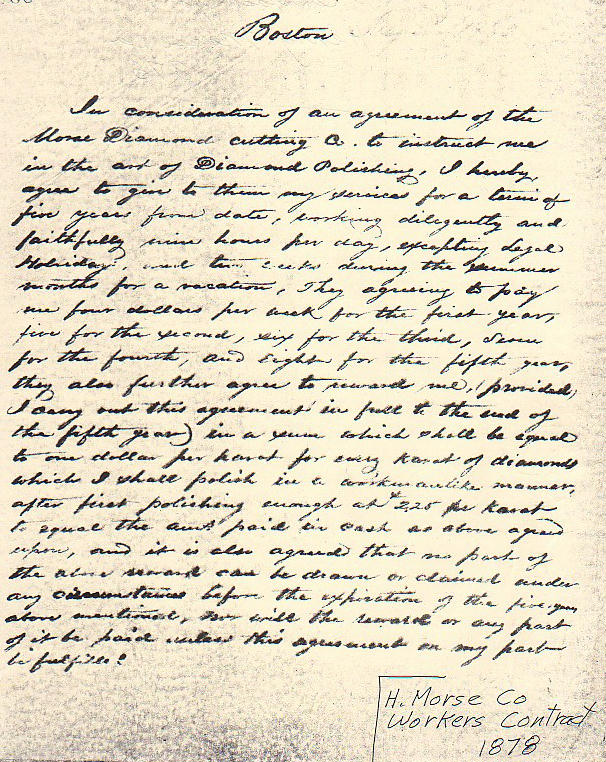 Boston
In consideration of an agreement of the
Morse Diamond cutting Co. to instruct me
in the art of Diamond Polishing, I hereby
agree to give to them my services for a term of
five years from date, working diligently and
faithfully nine hours per day, excepting Legal
Holidays, and two weeks during the summer
months for a vacation, They agreeing to pay
me four dollars per week for the first year,
five for the second, six for the third, seven
for the fourth, and eight for the fifth year,
they also further agree to reward me, (provided
I carry out this agreement in full to the end of
the fifth year) in a sum which shall be equal
to one dollar per karat for every karat of diamonds
which I shall polish in a workmanlike manner,
after first polishing enough at $2.25 per Karat
to equal the amt paid in cash as above agreed
upon, and it is also agreed that no part of
the above reward can be drawn or claimed under
any circumstances before the expiration of the five years
above mentioned, nor will the reward or any part
of it be paid unless this agreement on my part
be fulfilled
H. Morse Co
Workers Contract
1878